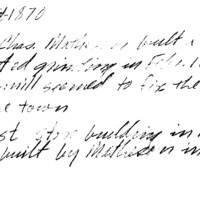 1870
Chas. Math built a
ted grinding in Feb. 1
mill seemed to fix the
e town
st store building in
built by Matheson in